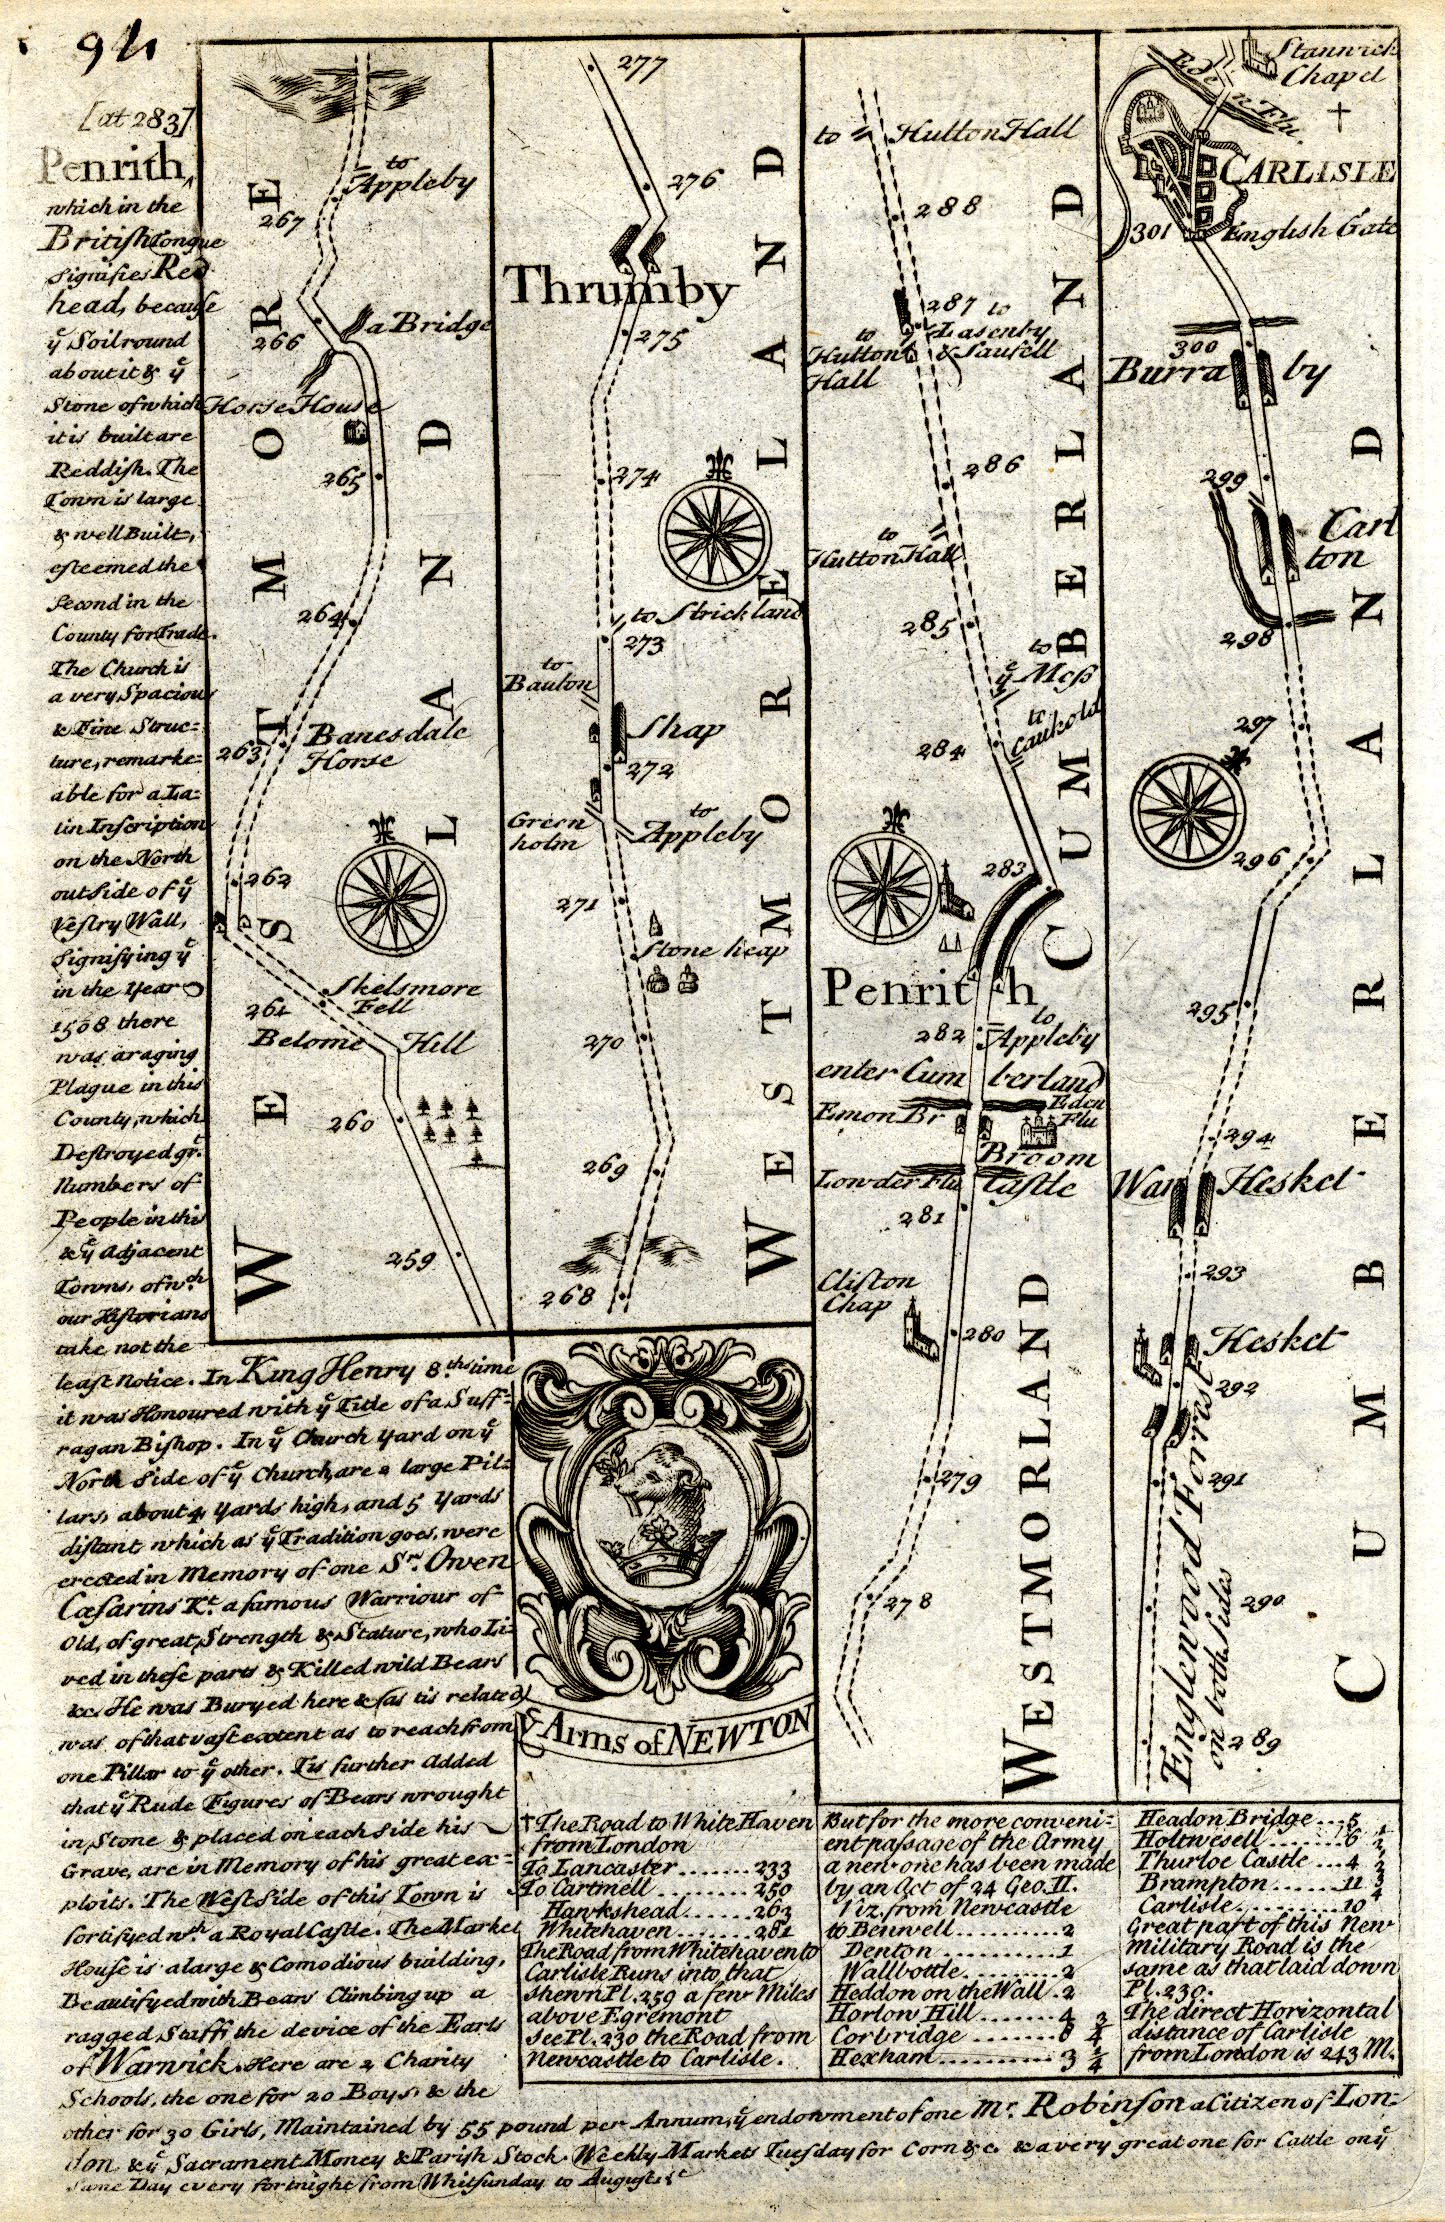 94
[at 283]
Penrith,
which in the
British Tongue
signifies Red
head, because
yᵉ Soil round
about it & yᵉ
Stone of which
it is built are
Reddish. The
Town is large
& well Built,
esteemed the
second in the
County for Trade.
The Church is
a very Spacious
& Fine Struc=
ture, remarke=
able for a La=
tin Inscription
on the North
outside of yᵉ
Vestry Wall,
Signifying yᵉ
in the Year
1508 there
was a raging
Plague in this
County, which
Destroyed grᵗ
Numbers of
People in this
& yᵉ Adjacent
Towns, of wᶜʰ
our Historians
take not the
least Notice. In King Henry 8.ᵗʰˢ time
it was Honoured with yᵉ Title of a Suff=
ragan Bishop. In yᵉ Church Yard on yᵉ
North Side of yᵉ Church, are 2 large Pil=
lars, about 4 Yards high, and 5 Yards
distant which as yᵉ Tradition goes, were
erected in Memory of one Sʳ. Owen
Cæsarins Kᵗ. a famous Warriour of
Old, of great Strength & Stature, who Li=
ved in these parts & Killed wild Bears
&c. He was Buryed here & (as tis related)
was of that vast extent as to reach from
one Pillar to yᵉ other. Tis further Added
that yᵉ Rude Figures of Bears wrought
in Stone & placed on each Side his
Grave, are in Memory of his great ex=
ploits. The West Side of this Town is
fortifyed wᵗʰ a Royal Castle. The Market
House is a large & Comodious building,
Beautifyed with Bears Climbing up a
ragged Staff the device of the Earls
of Warwick. Here are 2 Charity
Schools, the one for 20 Boys, & the
other for 30 Girls, Maintained by 55 pound per Annum, yᵉ endowment of one Mʳ. Robinson a Citizen of Lon=
don & yᵉ Sacrament Money & Parish Stock. Weekly Markets Tuesday for Corn &c. & a very great one for Cattle on yᵉ
same Day every fortnight from Whitsunday to August
to
Appleby
267
a Bridge
266
Horse House
265
264
263
Banesdale
Horse
262
Skelsmore
Fell
261
Belome Hill
260
259
WESTMORE
LAND
277
276
Thrumby
275
274
to Strickland
273
to
Bauton
Shap
272
Green
holm
to
Appleby
271
Stone heap
270
269
268
WESTMORELAND
yᵉ Arms of NEWTON
to Hutton Hall
288
287
to
Lasenby
& Saufell
to
Hutton
Hall
286
to
Hutton Hall
285
to
yᵉ Moss
to
Caukold
284
283
Penrith
282
to
Appleby
enter Cumberland
Eden
Flu
Emon Br
Broom
Castle
Lowder Flu
281
Clifton
Chap
280
279
278
CUMBERLAND
WESTMORLAND
Stanwick
Chapel
Eden Flu.
†
CARLISLE
301
English Gate
300
Burraby
299
Carl
ton
298
297
296
295
294
Wan Hesket
293
Hesket
292
291
290
289
Englewood Forrest
on both Sides
CUMBERLAND
† The Road to White Haven
from London
To Lancaster.......233
To Cartmell ........250
Hawkshead......263
Whitehaven......281
The Road from Whitehaven to
Carlisle Runs into that
shewn Pl. 259 a few Miles
above Egremont
see Pl. 230 the Road from
Newcastle to Carlisle.
But for the more conveni=
ent passage of the Army
a new one has been made
by an Act of 24 Geo. II.
Viz. from Newcastle
to Benwell..........2
Denton ...........1
Wallbottle.........2
Heddon on the Wall.2
Horlow Hill.......4
Corbridge .......8 3/4
Hexham..........3 1/4
Headon Bridge...5
Holtwesell.......6 1/2
Thurloe Castle ...4 1/2
Brampton......11 3/4
Carlisle.........10
Great part of this New
Military Road is the
same as that laid down
Pl. 230.
The direct Horizontal
distance of Carlisle
from London is 243 M.